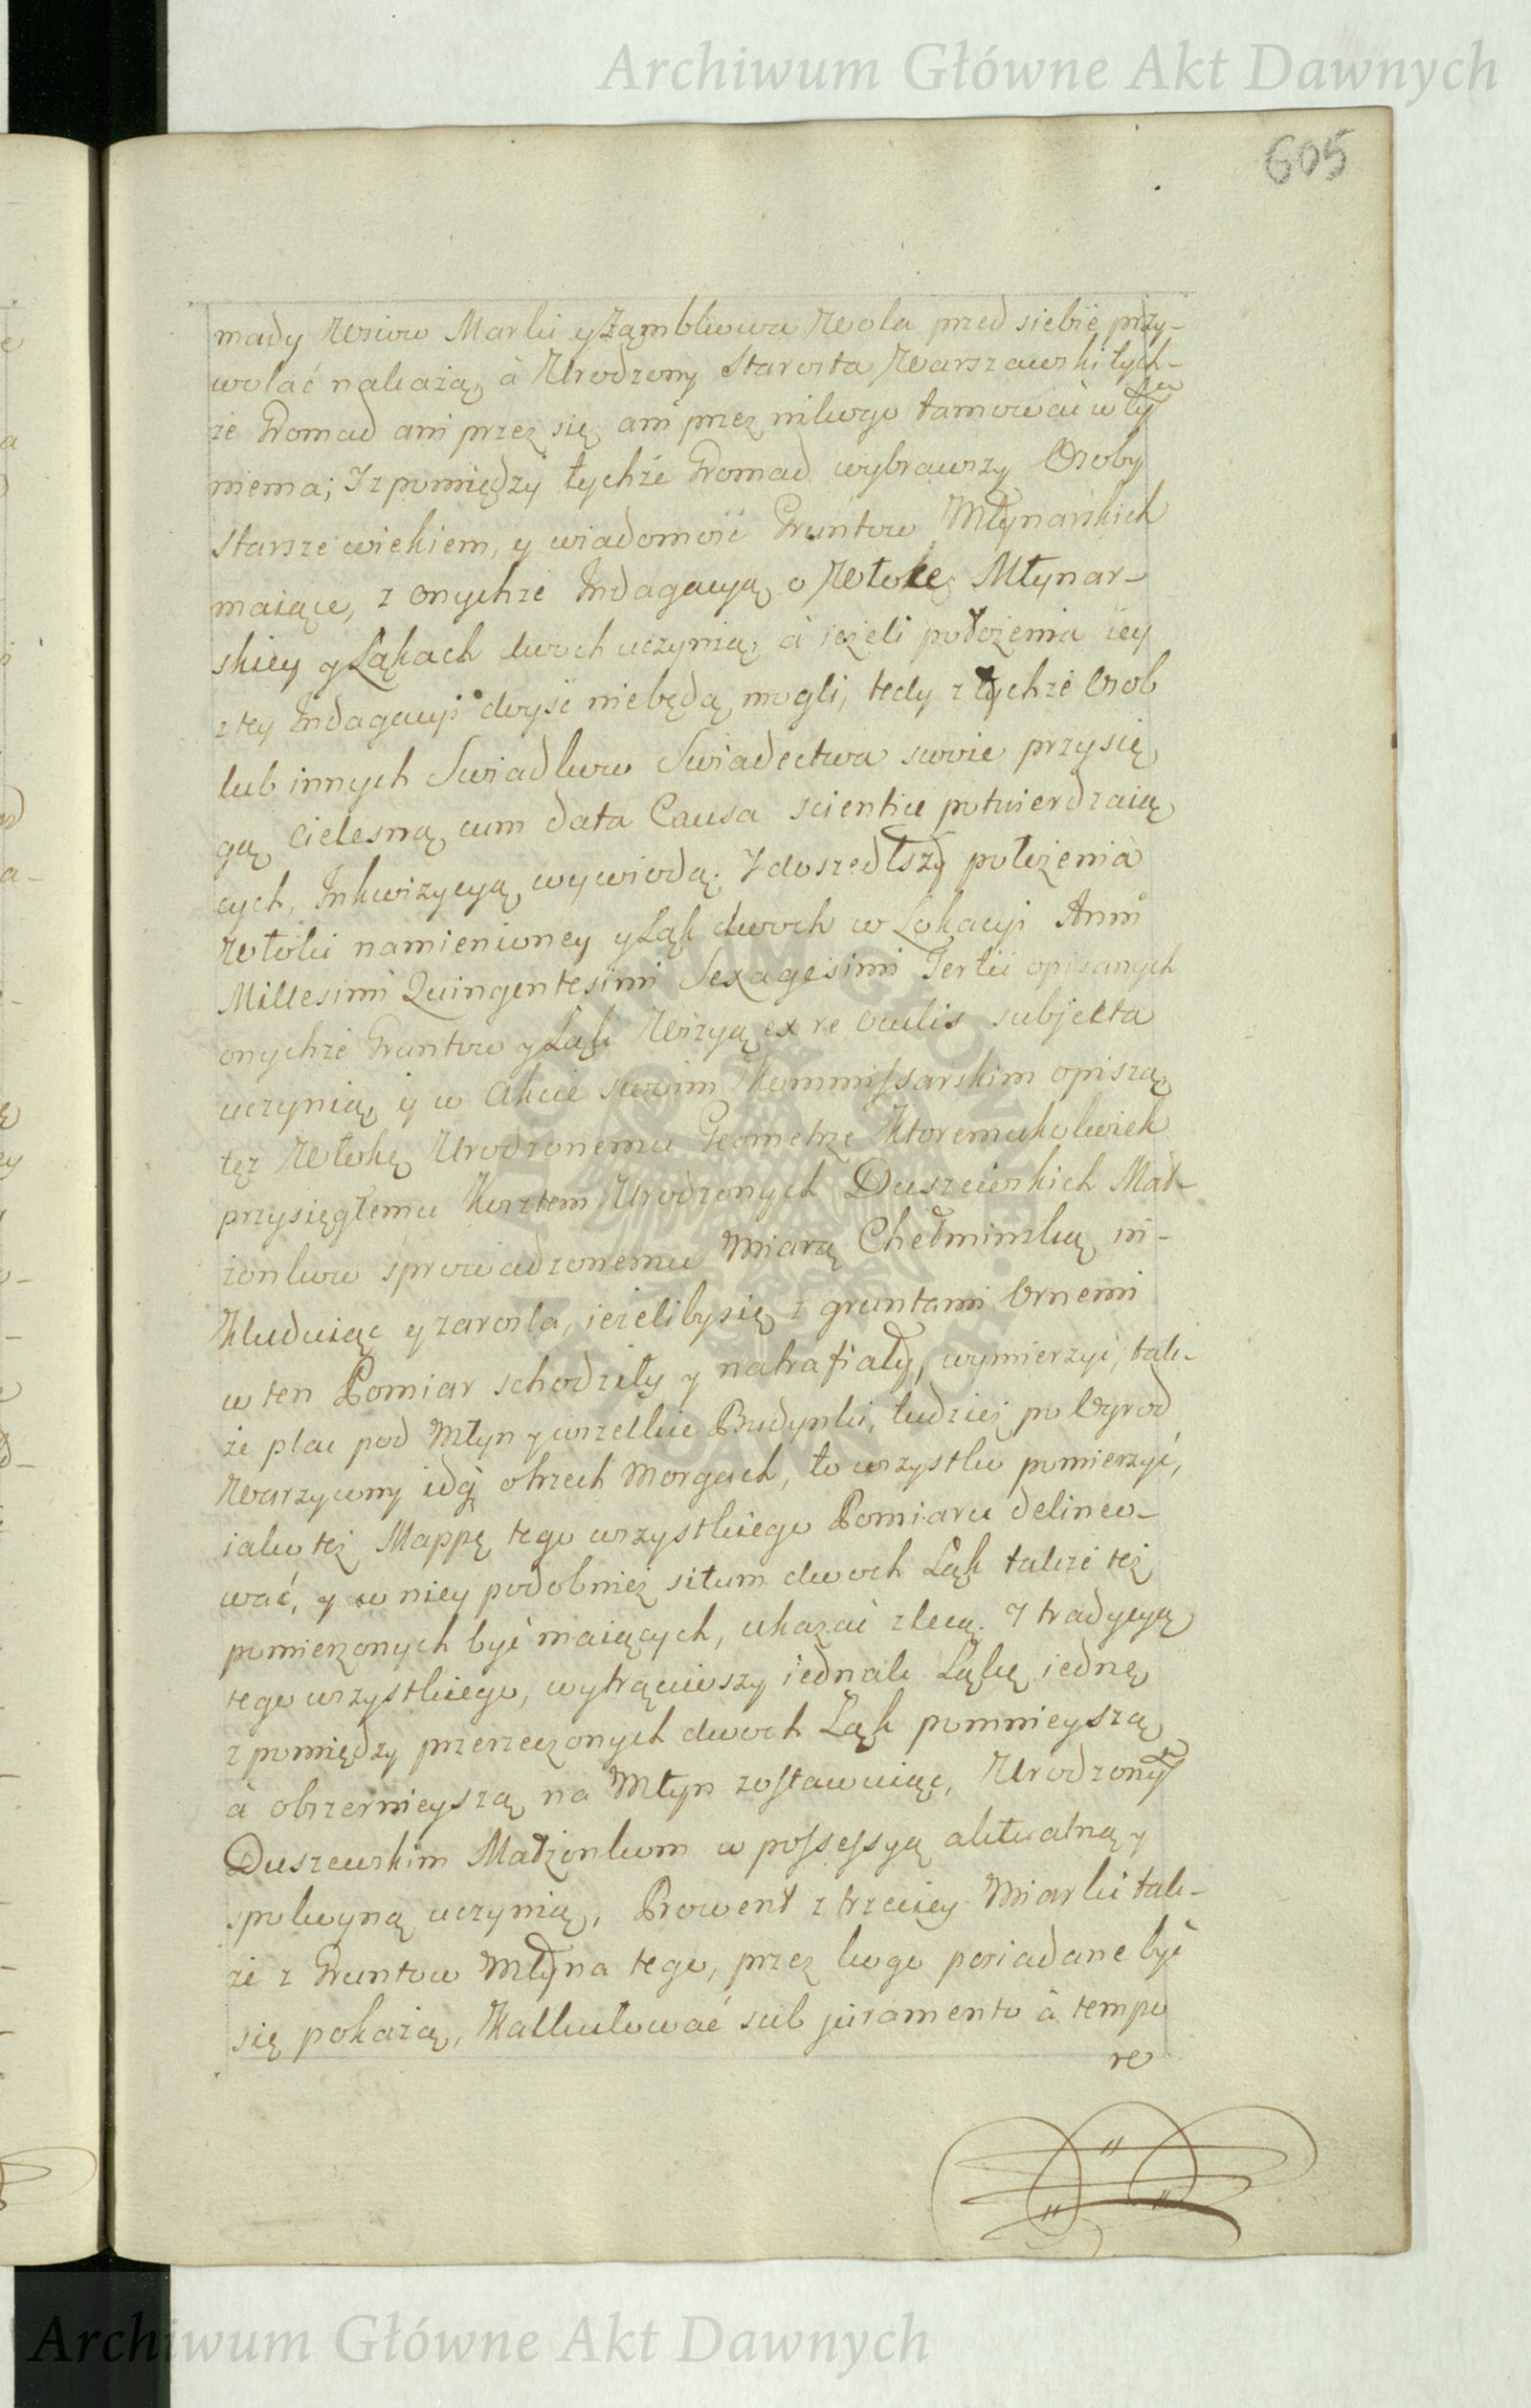 Archiwum Główne Akt Dawnych
605
mady Wsiow Marki y Ząmbkowa Wola przed siebie przy-
wołać nakażą, à Urodzony Starosta Warszawski tych-
że Gromad ani przez się ani przez nikogo tamować w tym
niema; I z pomiędzy tychże Gromad wybrawszy Osoby
starsze wiekiem, y wiadomość Gruntow Młynarskich
maiące, z onychże Indagacyą o Włokę Młynar-
skiey y Łąkach dwoch uczynią, à ieżeli położenia iey
z tey Indagacyi doyść niebędą mogli, tedy z tychże Osob
lub innych Swiadkow Swiadectwa swoie przysię
gą cielesną cum data Causa scientiæ potwierdzaią
cych, Inkwizycyą wywiodą. I doszedłszy położenia
Włoki namienioney y Łąk dwoch w Lokacyi Anni
Millesimi Quingentesimi Sexagesimi Tertii opisanych
onychże Gruntow y Łąk Wizyą ex re oculis subjecta
uczynią, y w Akcie swoim Kommissarskim opiszą,
tęż Włokę Urodzonemu Geometrze Ktoremukolwiek
przysięgłemu Kosztem Urodzonych Duszewskich Mał-
żonkow sprowadzonemu Miarą Chełminską in-
kluduiąc y zarosla, ieżeliby się z gruntami Ornemi
w ten Pomiar schodziły y natrafiały, wymierzyć, tak-
że plac pod Młyn y wszelkie Budynki, tudzież po Ogrod
Warzywny idą otrzech Morgach, to wszystko pomierzyć,
iako też Mappę tego wszystkiego Pomiaru delineo-
wać, y w niey podobnież situm dwoch Łąk także też
pomierzonych być maiących, ukazać zlecą. I tradycyą
tego wszystkiego, wytrąciwszy iednak Łąkę iednę
z pomiędzy przerzeczonych dwoch Łąk pomnieyszą
à obszernieyszą na Młyn zostawuiąc, Urodzonym
Duszewskim Małżonkom w possessyą aktualną y
spokoyną uczynią, Prowent z trzeciey Miarki tak-
że z Gruntow Młyna tego, przez kogo posiadane być
się pokażą, Kalkulować sub juramento à tempo
re
Archiwum Główne Akt Dawnych